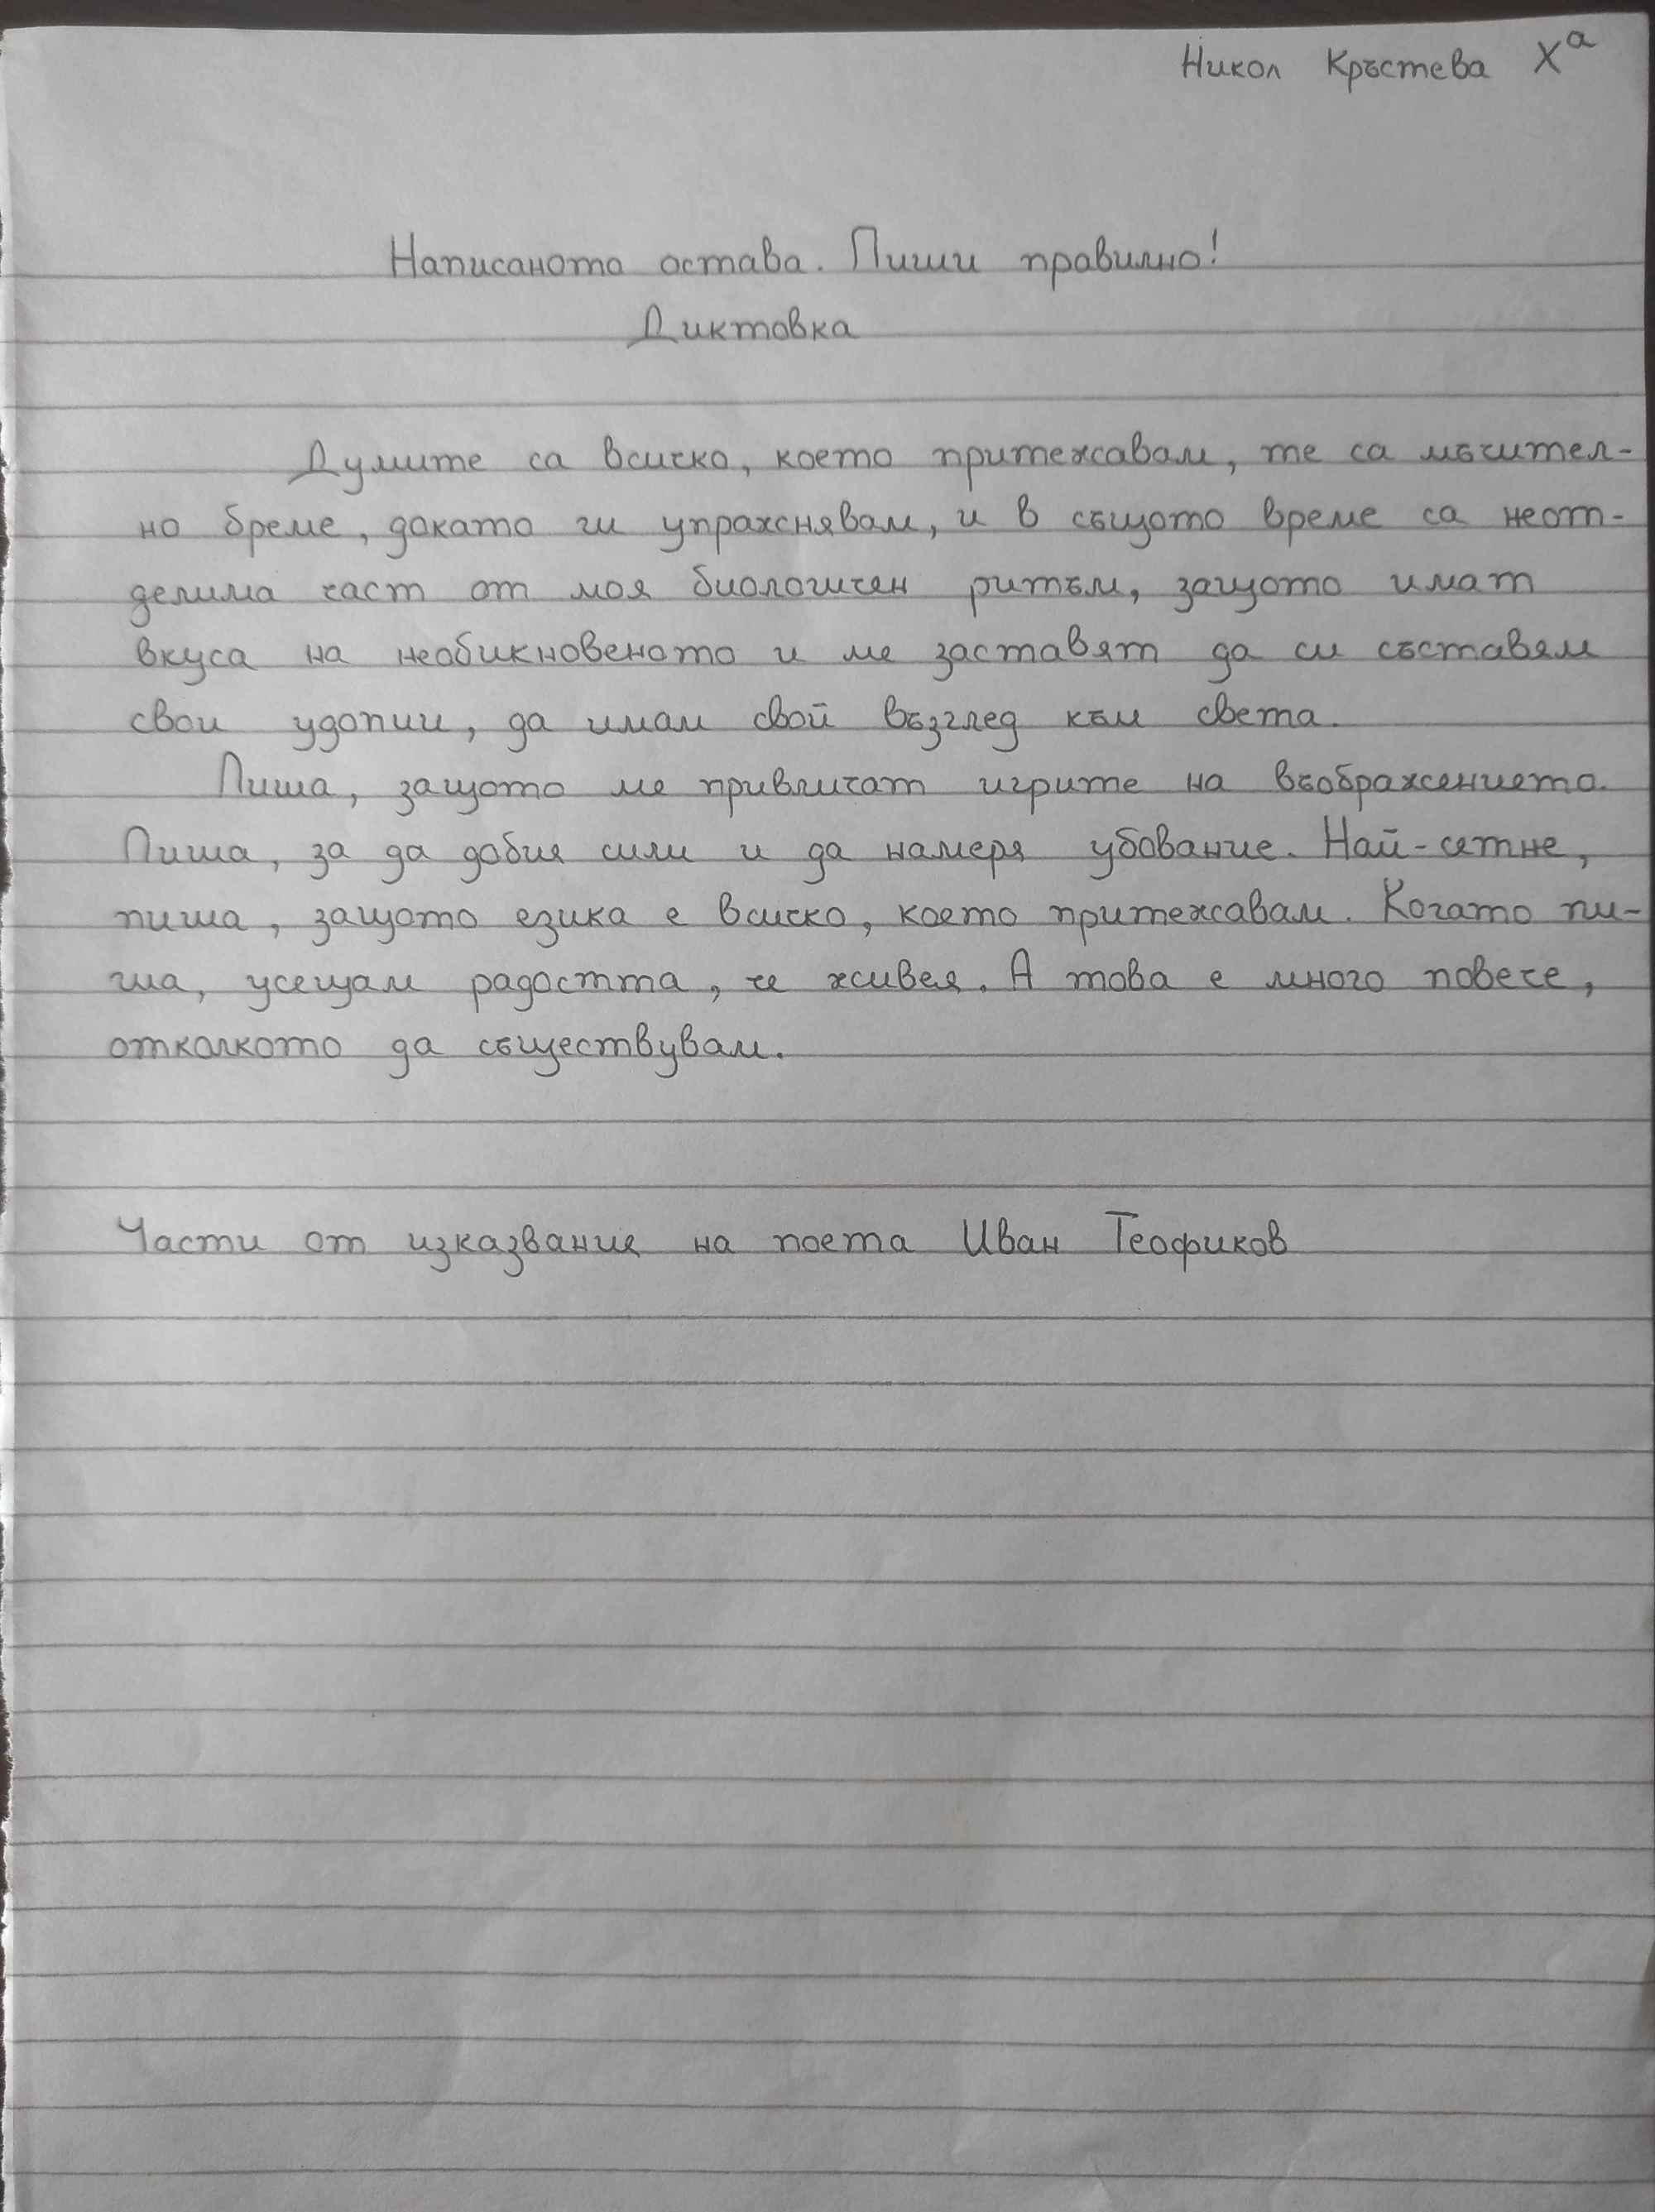 Никол Кръстева Xа
Написаното остава. Пиши правилно!
Диктовка
Думите са всичко, което притежавам, те са мъчител-
но бреме, докато ги упражнявам, и в същото време са неот-
делима част от моя биологичен ритъм, защото имат
вкуса на необикновеното и ме заставят да си съставям
свои удопии, да имам свой възглед към света.
Пиша, защото ме привличат игрите на въображението.
Пиша, за да добия сили и да намеря убование. Най-сетне,
пиша, защото езика е всичко, което притежавам. Когато пи-
ша, усещам радостта, че живея. А това е много повече,
отколкото да съществувам.
Части от изказвания на поета Иван Теофиков